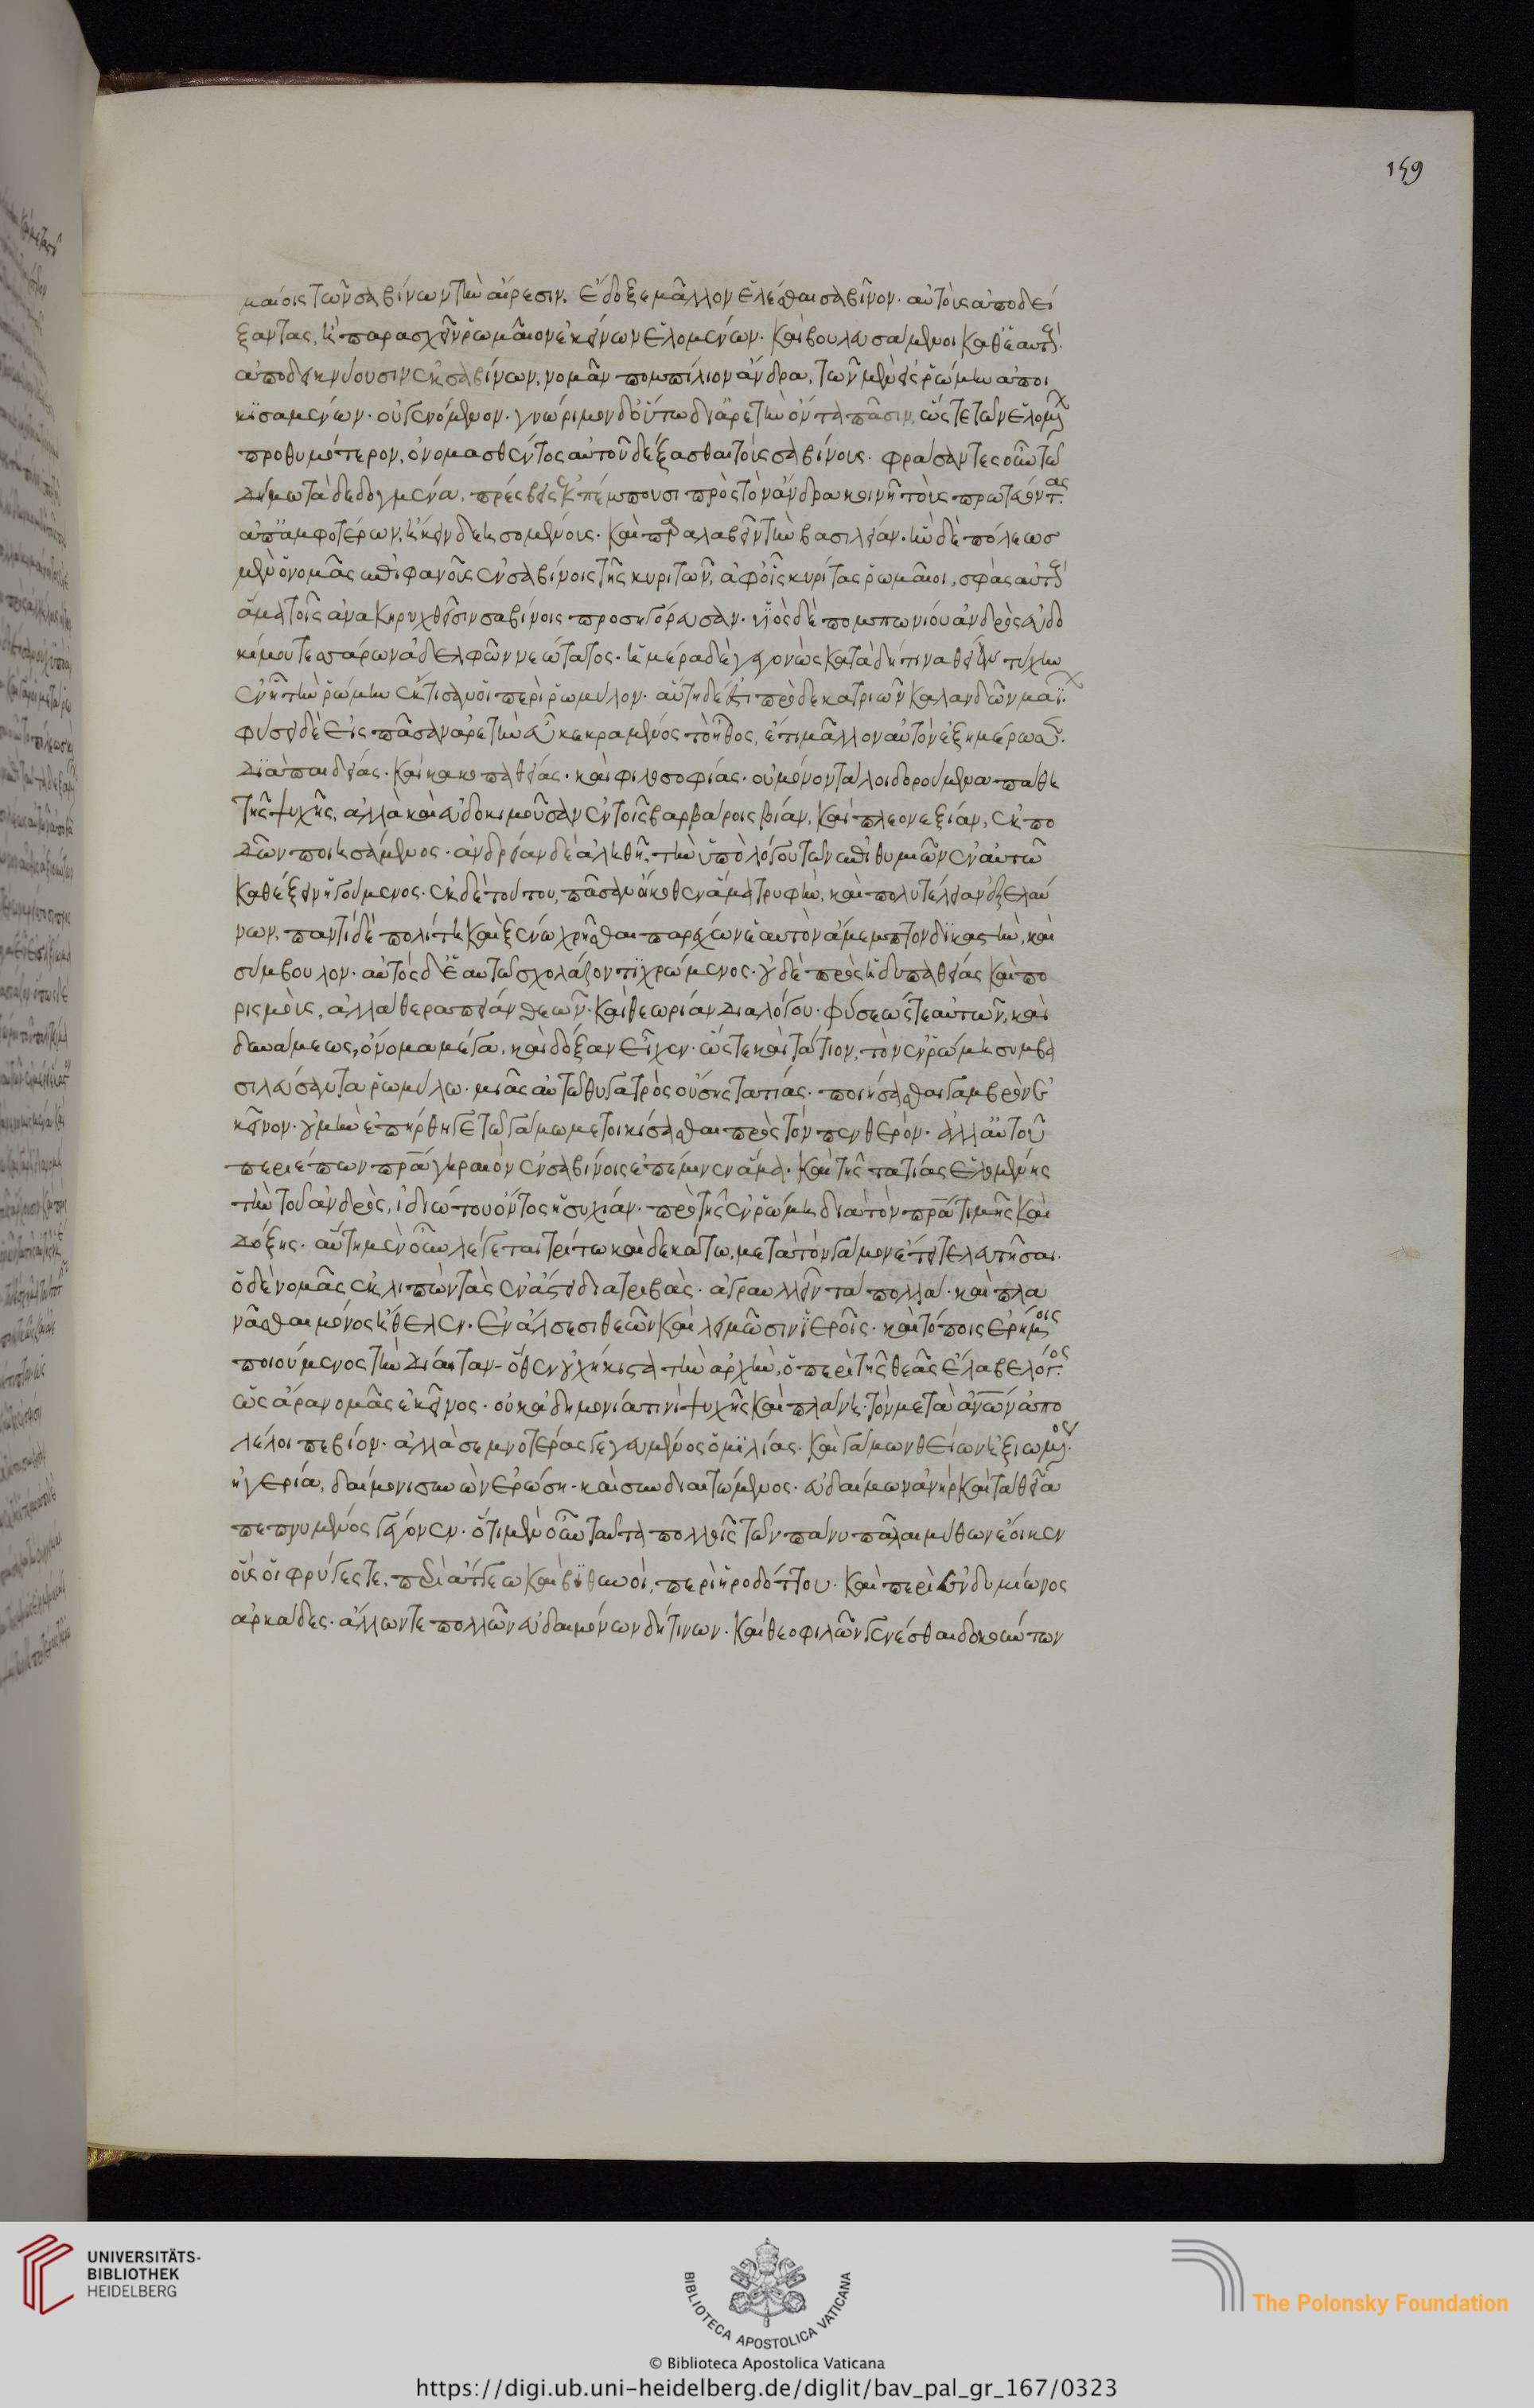 159
μαίοις τῶν σαβίνων τὴν αἵρεσιν, ἔδοξε μᾶλλον ἑλέσθαι σαβῖνον. αὐτοὺς ἀποδεί
ξαντας, ἢ παρασχεῖν ῥωμαῖον ἐκείνων ἑλομένων. καὶ βουλευσάμενοι καθ' ἑαυτοὺς.
ἀποδεικνύουσιν ἐκ σαβίνων, νομᾶν πομπίλιον ἄνδρα, τῶν μὲν εἰς ῥώμην ἀπῳ
κισαμένων. οὐ γενόμενον. γνώριμον δ' οὕτω δι' ἀρετὴν ὄντα πᾶσιν, ὥστε τῶν ἑλομένων
προθυμότερον, ὀνομασθέντος αὐτοῦ δέξασθαι τοὺς σαβίνους. φράσαντες οὖν τῷ
δήμῳ τὰ δεδογμένα, πρέσβεις ἐκπέμπουσι πρὸς τὸν ἄνδρα κοινῇ τοὺς πρωτεύοντας.
ἀπ' ἀμφοτέρων, ἥκειν δεησομένους. καὶ παραλαβεῖν τὴν βασιλείαν. ἦν δὲ πόλεως
μὲν ὁ νομᾶς ἐπιφανοῦς ἐν σαβίνοις τῆς κυριτῶν, ἀφ' οἷς κυρίτας ῥωμαῖοι, σφᾶς αὐτοὺς
ἅμα τοῖς ἀνακηρυχθεῖσιν σαβίνοις προσηγόρευσαν. υἱὸς δὲ πομπωνίου ἀνδρὸς εὐδο
κίμου τεσσάρων ἀδελφῶν νεώτατος. ἡμέρα δὲ γεγονὼς κατὰ δή τινα θείαν τύχην
ἐν ᾗ τὴν ῥώμην ἔκτισαν οἱ περὶ ῥωμύλον. αὕτη δέ ἐστι πρὸ δεκατριῶν καλανδῶν μαΐων.
φύσει δὲ εἰς πᾶσαν ἀρετὴν εὖ κεκραμένος τὸ ἦθος, ἔτι μᾶλλον αὐτὸν ἐξημέρωσε.
διὰ παιδείας. καὶ κακοπαθείας. καὶ φιλοσοφίας. οὐ μόνον τὰ λοιδορούμενα πάθη
τῆς ψυχῆς, ἀλλὰ καὶ εὐδοκιμοῦσαν ἐν τοῖς βαρβάροις βίαν, καὶ πλεονεξίαν, ἐκπο
δῶν ποιησάμενος. ἀνδρείαν δὲ ἀληθῆ, τὴν ὑπὸ λόγου τῶν ἐπιθυμιῶν ἐν αὐτῷ
κάθεξιν ἡγούμενος. ἐκ δὲ τούτου, πᾶσαν οἴκοθεν ἅμα τρυφὴν, καὶ πολυτέλειαν ἐξελαύ
νων, παντὶ δὲ πολίτῃ καὶ ξένῳ χρῆσθαι παρέχων ἑαυτὸν ἄμεμπτον δικαστὴν, καὶ
σύμβουλον. αὐτὸς δ' ἑαυτῷ σχολάζοντι χρώμενος. οὐδὲ πρὸς ἡδυπαθείας καὶ πο
ρισμοὺς, ἀλλὰ θεραπείαν θεῶν. καὶ θεωρίαν διὰ λόγου. φύσεώς τε αὐτῶν, καὶ
δυνάμεως, ὄνομα μέγα, καὶ δόξαν εἶχεν. ὥστε καὶ τάτιον, τὸν ἐν ῥώμῃ συμβα
σιλεύσαντα ῥωμύλῳ. μιᾶς αὐτῷ θυγατρὸς οὔσης τατίας. ποιήσασθαι γαμβρὸν ἐ
κεῖνον. οὐ μὴν ἐπήρθη γε τῷ γάμῳ μετοικίσασθαι πρὸς τὸν πενθερόν. ἀλλ' αὐτοῦ
περιέπων πατέρα γηραιὸν ἐν σαβίνοις ἐπέμεινεν ἅμα. καὶ τῆς τατίας ἑλομένης
τὴν τοῦ ἀνδρὸς, ἰδιώτου ὄντος ἡσυχίαν. πρὸ τῆς ἐν ῥώμῃ διὰ τὸν πατέρα τιμῆς καὶ
δόξης. αὕτη μὲν οὖν λέγεται τρίτῳ καὶ δεκάτῳ, μετὰ τὸν γάμον ἔτει τελευτῆσαι.
ὁ δὲ νομᾶς ἐκλιπὼν τὰς ἐν ἄστει διατριβὰς. ἀγραυλεῖν τὰ πολλά. καὶ πλα
νᾶσθαι μόνος ἤθελεν. ἐν ἄλσεσι θεῶν καὶ λειμῶσιν ἱεροῖς. καὶ τόποις ἐρήμοις
ποιούμενος τὴν δίαιταν. ὅθεν οὐχ ἥκιστα τὴν ἀρχὴν, ὁ περὶ τῆς θεᾶς ἔλαβε λόγος.
ὡς ἄρα νομᾶς ἐκεῖνος. οὐκ ἀδημονίᾳ τινὶ ψυχῆς καὶ πλάνῃ. τὸν μετὰ ἀνθρώπων ἀπο
λέλοιπε βίον. ἀλλὰ σεμνοτέρας γεγευμένος ὁμιλίας. καὶ γάμων θείων ἠξιωμένος.
ἠγερίᾳ, δαίμονι συνὼν ἐρώσῃ. καὶ συνδιαιτώμενος. εὐδαίμων ἀνὴρ καὶ τὰ θεῖα
πεπνυμένος γέγονεν. ὅτι μὲν οὖν ταῦτα πολλοῖς τῶν πάνυ παλαιῶν μύθων ἔοικεν
οὓς οἱ φρύγες τε, περὶ ἄττεω καὶ βιθυνοὶ, περὶ ἡροδότου. καὶ περὶ ἐνδυμίωνος
ἀρκάδες. ἄλλων τε πολλῶν εὐδαιμόνων δή τινων. καὶ θεοφιλῶν γενέσθαι δοκούντων
UNIVERSITÄTS-
BIBLIOTHEK
HEIDELBERG
BIBLIOTECA APOSTOLICA VATICANA
The Polonsky Foundation
© Biblioteca Apostolica Vaticana
https://digi.ub.uni-heidelberg.de/diglit/bav_pal_gr_167/0323